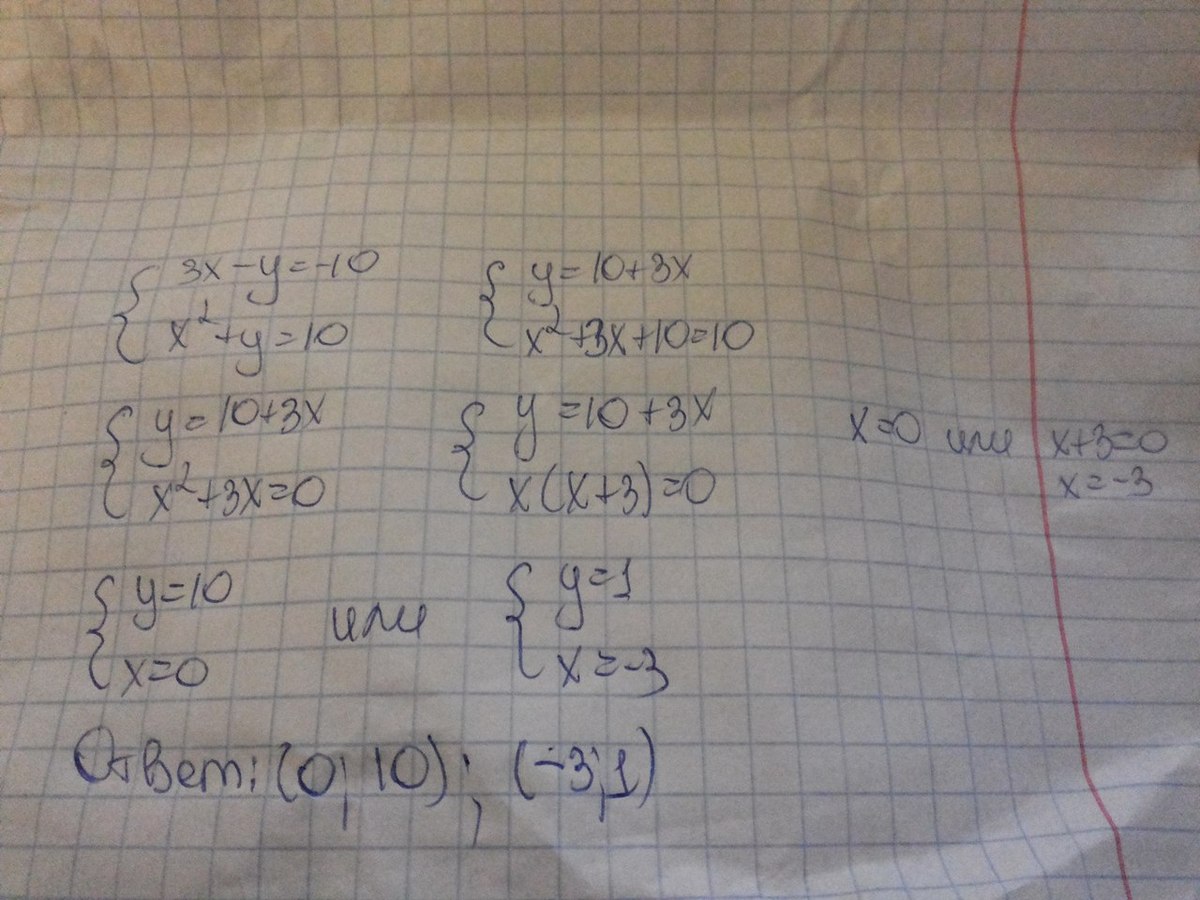 3x-y=-10
x²+y=10
y=10+3x
x²+3x+10=10
y=10+3x
x²+3x=0
y=10+3x
x(x+3)=0
x=0 или x+3=0
x=-3
y=10
x=0
или
y=1
x=-3
Ответ: (0; 10); (-3;1)